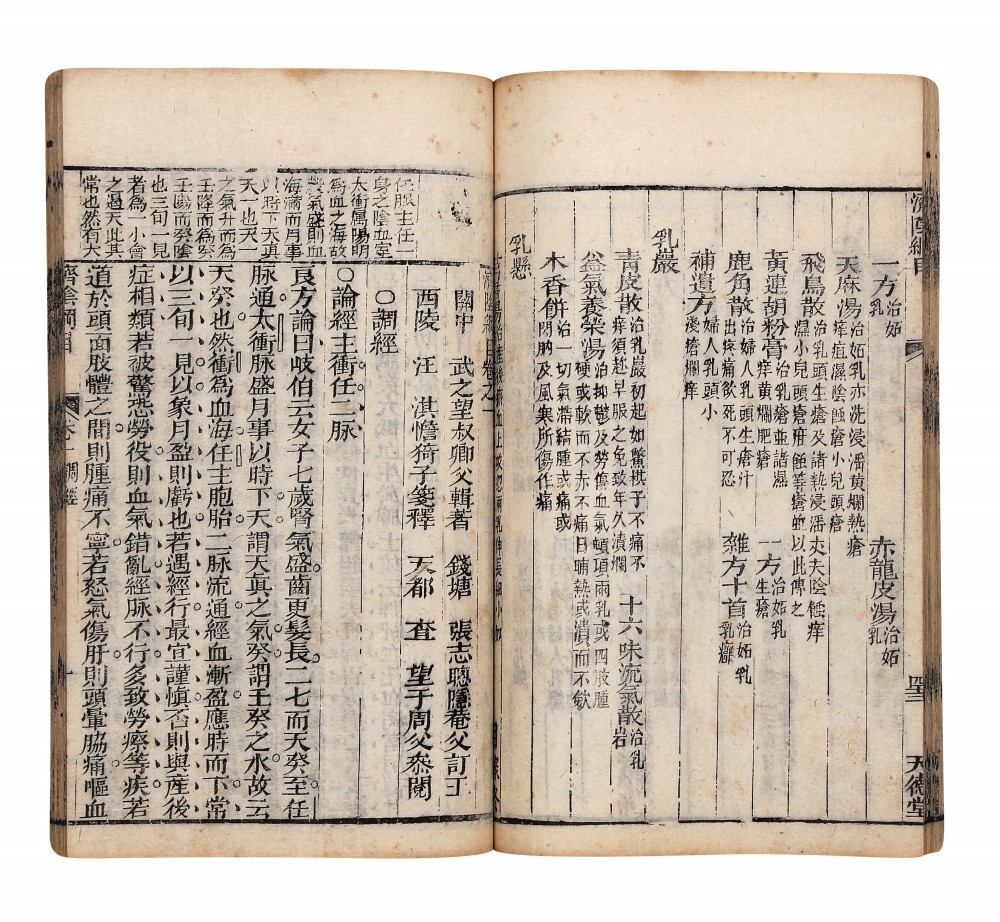 一方治妬乳 赤龍皮湯治妬乳
天麻湯治妬乳亦洗浸潘黃爛熱瘡痒疽濕陰蝕瘡小兒頭瘡
飛鳥散治乳頭生瘡及諸熱浸潘夾夫陰蝕痒濕小兒頭瘡疳蝕等瘡並以此傅之
黃連胡粉膏治乳瘡並諸濕痒黃爛肥瘡 一方治妬乳生瘡
鹿角散治婦人乳頭生瘡汁出疼痛欲死不可忍 雜方十首治妬乳乳癰
補遺方婦人乳頭小淺瘡爛痒
乳巖
青皮散治乳巖初起如鱉棋子不痛不痒須趁早服之免致年久潰爛 十六味流氣散治乳岩
益氣養榮湯治抑鬱及勞傷血氣頸項兩乳或四肢腫硬或軟而不赤不痛日晡熱或潰而不歛
木香餅治一切氣滯結腫或痛或閃肭及風寒所傷作痛
乳懸
天德堂
濟陰綱目卷之一
關中 武之望叔卿父輯著 錢塘 張志聰隱菴父訂正
西陵 汪淇憺猗子箋釋 天都 查望于周父叅閱
○調經
○論經主衝任二脉
良方論曰岐伯云女子七歲腎氣盛齒更髮長二七而天癸至任
脉通太衝脉盛月事以時下天謂天真之氣癸謂壬癸之水故云
天癸也然衝為血海任主胞胎二脉流通經血漸盈應時而下常
以三旬一見以象月盈則虧也若遇經行最宜謹慎否則與產後
症相類若被驚恐勞役則血氣錯亂經脉不行多致勞瘵等疾若
道於頭面肢體之間則腫痛不寧若怒氣傷肝則頭暈脇痛嘔血
任脉主任
身之陰血室
太衝属陽明
為血之海故
榖氣盛則血
海滿而月事
以時下天真
天一也天一
之氣升而為
壬降而為癸
壬陽而癸陰
也三旬一見
者為一小會
之過天此其
常也然有大
濟陰綱目
卷一調經
一